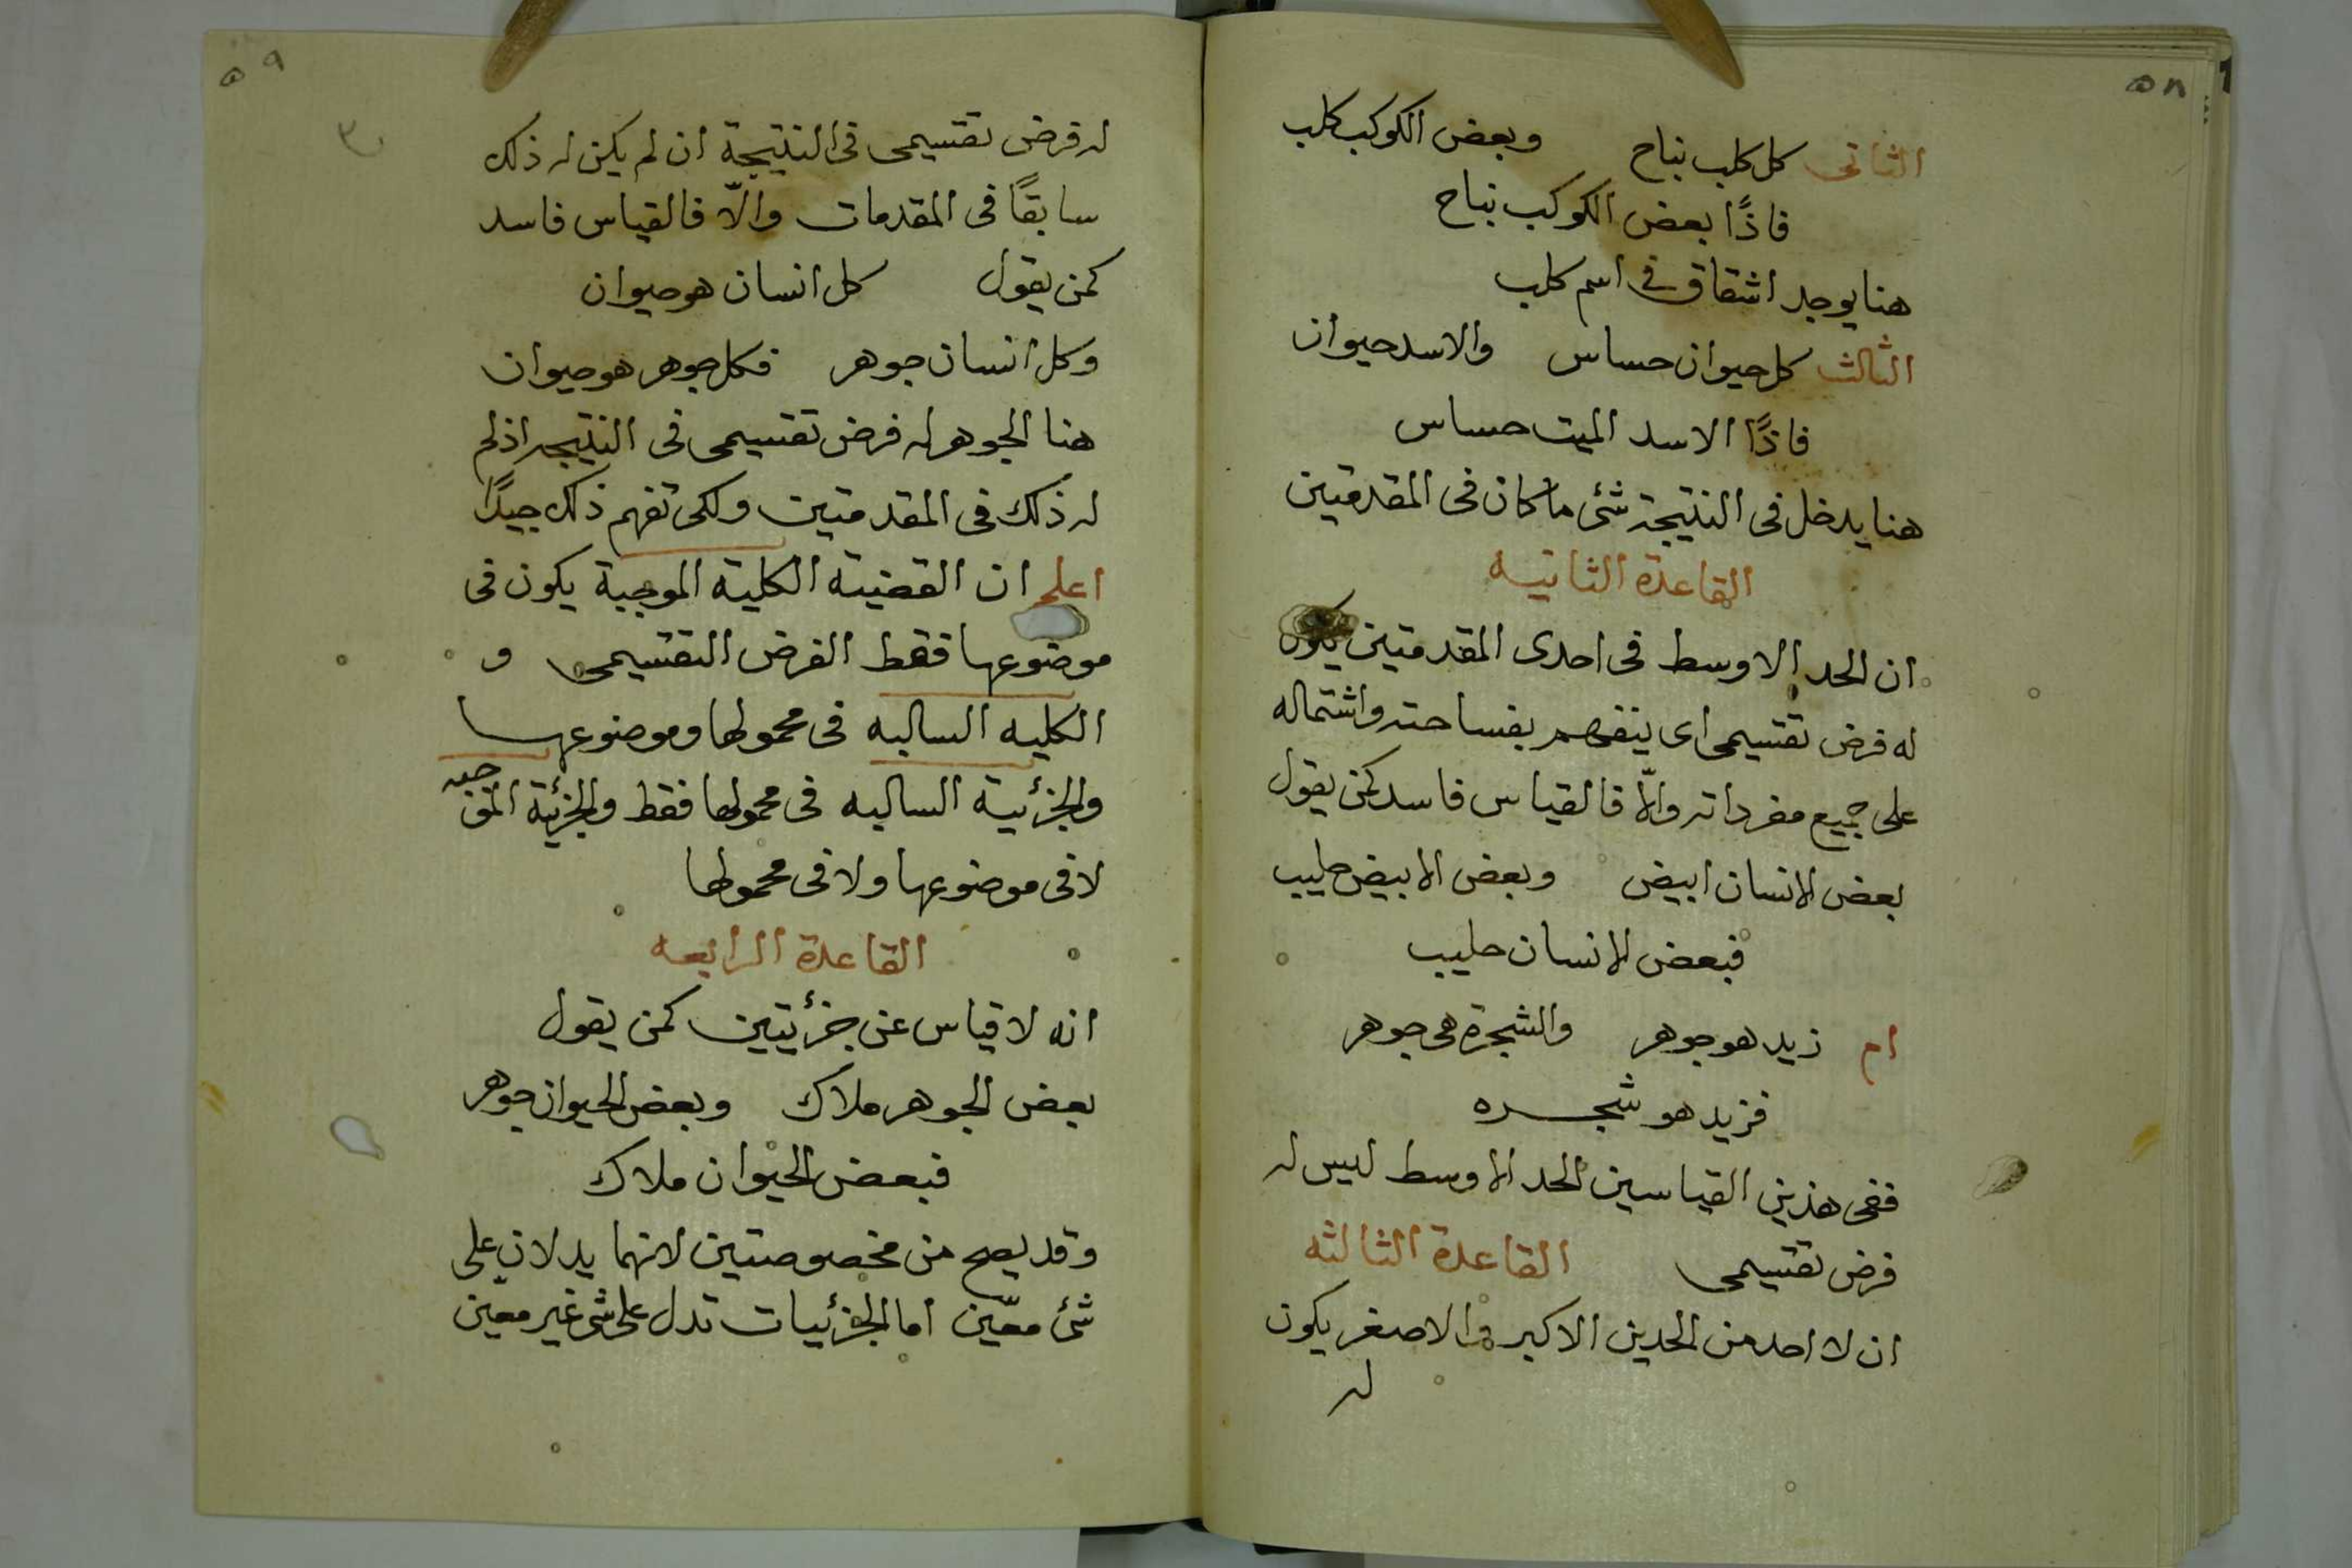 ٥٨
الثانى كل كلب نباح وبعض الكوكب كلب
فاذًا بعض الكوكب نباح
هنا يوجد اشقاق فى اسم كلب
الثالث كل حيوان حساس والاسد حيوان
فاذًا الاسد الميت حساس
هنا يدخل فى النتيجة شئ ما كان فى المقدمتين
القاعدة الثانيه
ان الحد الاوسط فى احدى المقدمتين يكون
له فرض تقسيمى اى ينفهم بفساحته واشتماله
على جميع مفرداته والّا فالقياس فاسد كمن يقول
بعض الانسان ابيض وبعض الابيض حليب
فبعض الانسان حليب
ام زيد هو جوهر والشجرة هى جوهر
فزيد هو شجره
ففى هذين القياسين الحد الاوسط ليس له
فرض تقسيمى القاعدة الثالثه
ان لا احد من الحدين الاكبر والاصغر يكون
له
٥٩
له فرض تقسيمى فى النتيجة ان لم يكن له ذلك
سابقًا فى المقدمات والّا فالقياس فاسد
كمن يقول كل انسان هو حيوان
وكل انسان جوهر فكل جوهر هو حيوان
هنا الجوهر له فرض تقسيمى فى النتيجه اذ لم
له ذلك فى المقدمتين ولكى تفهم ذلك جيدًا
اعلم ان القضيه الكليه الموجبة يكون فى
موضوعها فقط الفرض التقسيمى و
الكليه السالبه فى محمولها وموضوعها
والجزئية السالبه فى محمولها فقط والجزئية الموجبه
لا فى موضوعها ولا فى محمولها
القاعدة الرابعه
انه لا قياس عن جزئيتين كمن يقول
بعض الجوهر ملاك وبعض الحيوان جوهر
فبعض الحيوان ملاك
وقد يصح من مخصوصتين لانهما يدلان على
شئ معيّن اما الجزئيات تدل على شى غير معيّن